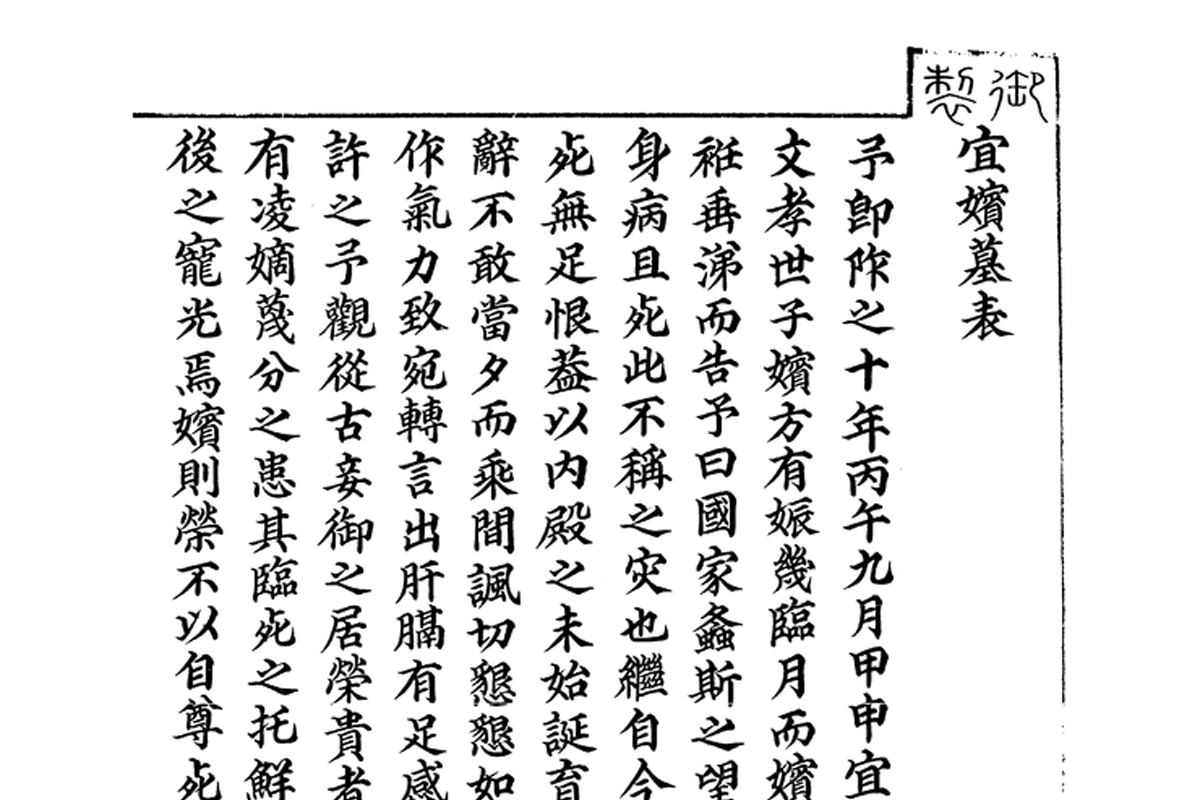 御製
宜嬪墓表
予卽阼之十年丙午九月甲申宜
文孝世子嬪方有娠幾臨月而嬪
袵垂涕而告予曰國家螽斯之望
身病且死此不稱之灾也繼自今
死無足恨盖以內殿之未始誕育
辭不敢當夕而乘間諷切懇懇如
作氣力致宛轉言出肝膈有足感
許之予觀從古妾御之居榮貴者
有凌嫡蔑分之患其臨死之托鮮
後之寵光焉嬪則榮不以自尊死